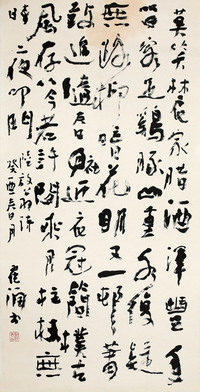 莫笑農家腊酒渾豐年
留客足鷄豚山重水複疑
無路柳暗花明又一邨簫
鼓追隨春社近衣冠簡樸古
風存從今若許閒乘月拄杖無
時夜叩門
陸放翁詩
癸酉春月
書